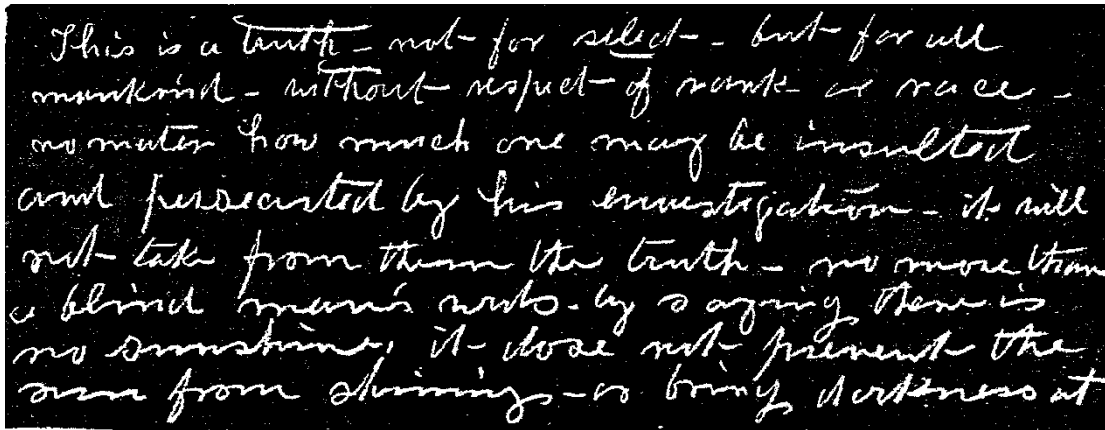 This is a truth - not for select - but for all
mankind - without respect of rank or race -
no mater how much one may be insulted
and persecuted by his envestigation - it will
not take from them the truth - no more than
a blind man's by saying there is
no sunshine, it dose not prevent the
sun from shining - or bring darkness at